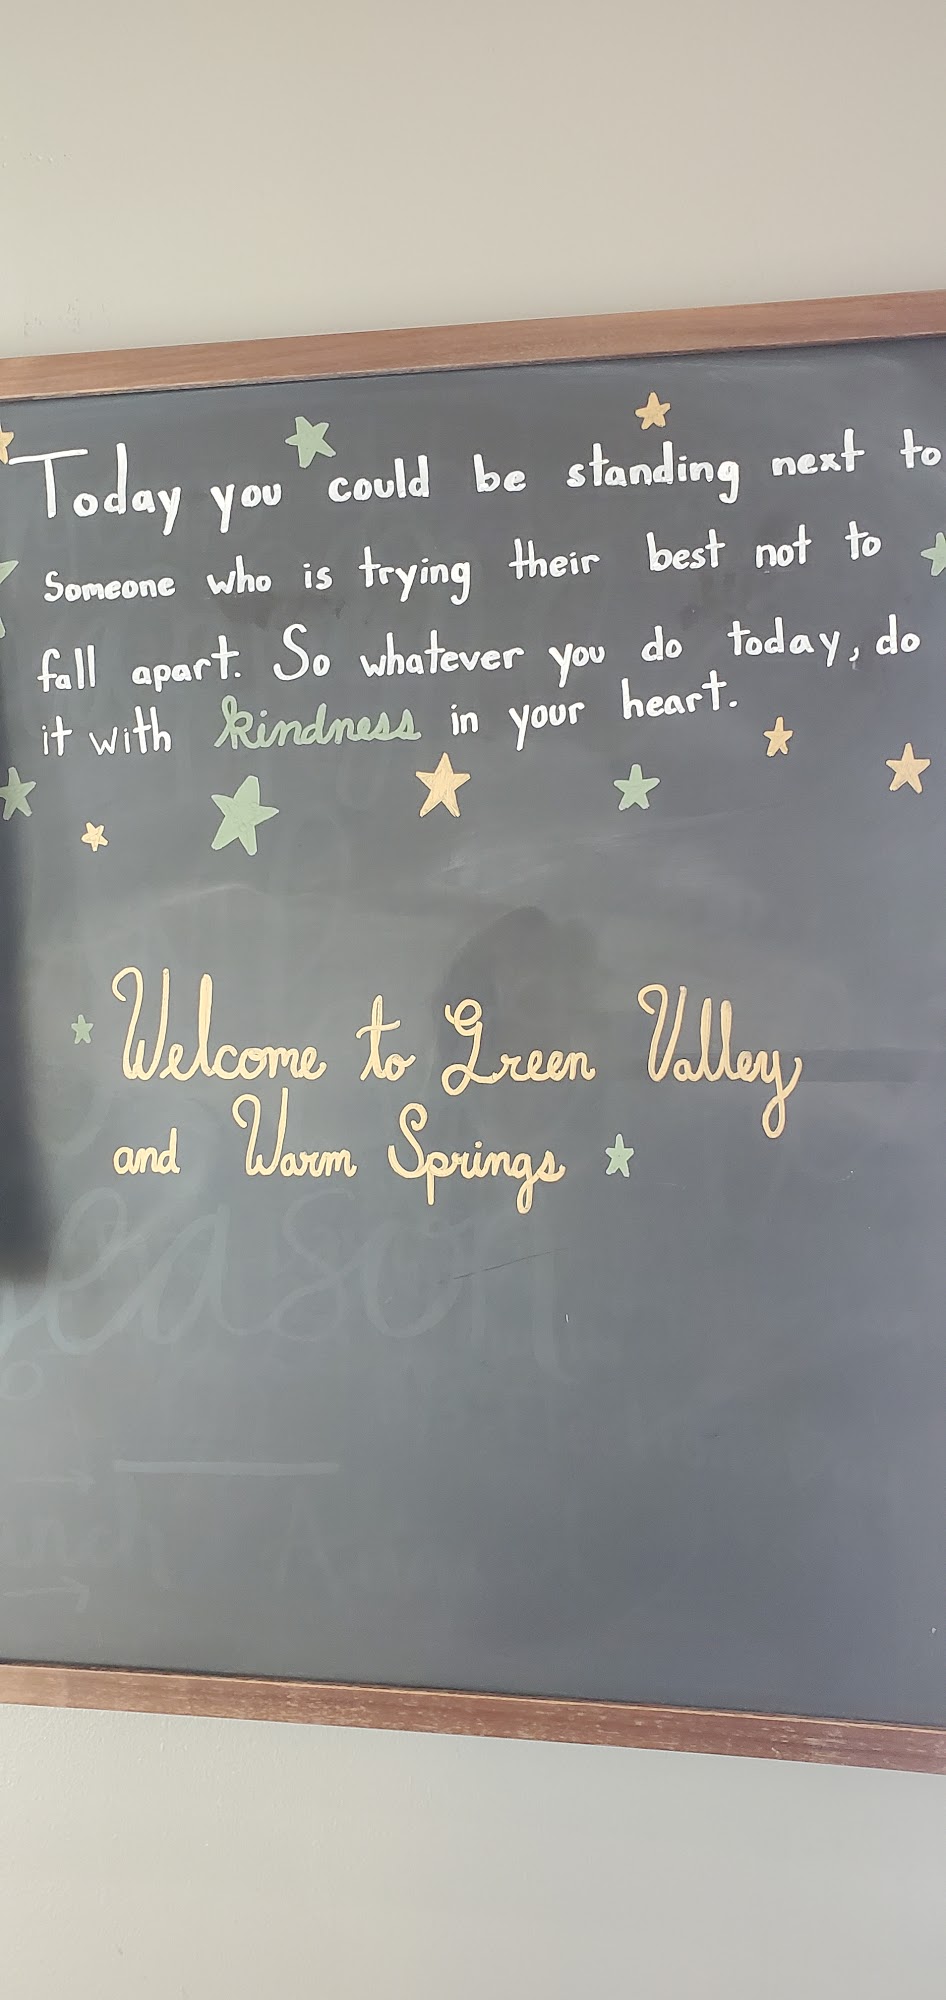 Today you could be standing next to
Someone who is trying their best not to
fall apart. So whatever you do today, do
it with kindness in your heart.
Welcome to Green Valley
and Warm Springs
eason